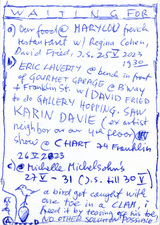 WAITING FOR
a) our food @ MARYLOU french
restaurant w/ Regina Cohen,
David Fried, J.S. 25 V 2023
1930
b) ERIC LAVERTY @ bench in front
of GOURMET GARAGE @ B'WAY
+ Franklin St. w/ DAVID FRIED
to do GALLERY HOPPING. SAW
KARIN DAVIE (an artist
neighbor on our 4th floor)
show @ CHART 74 Franklin
26 V 2023
c) @ Michelle Mickelsohn's
27 V - 31 (J.S. till 30 V)
a bird got caught with
one toe in a CLAM, i
freed it by tearing off his toe.
NO OTHER SOLUTION POSSIBLE!